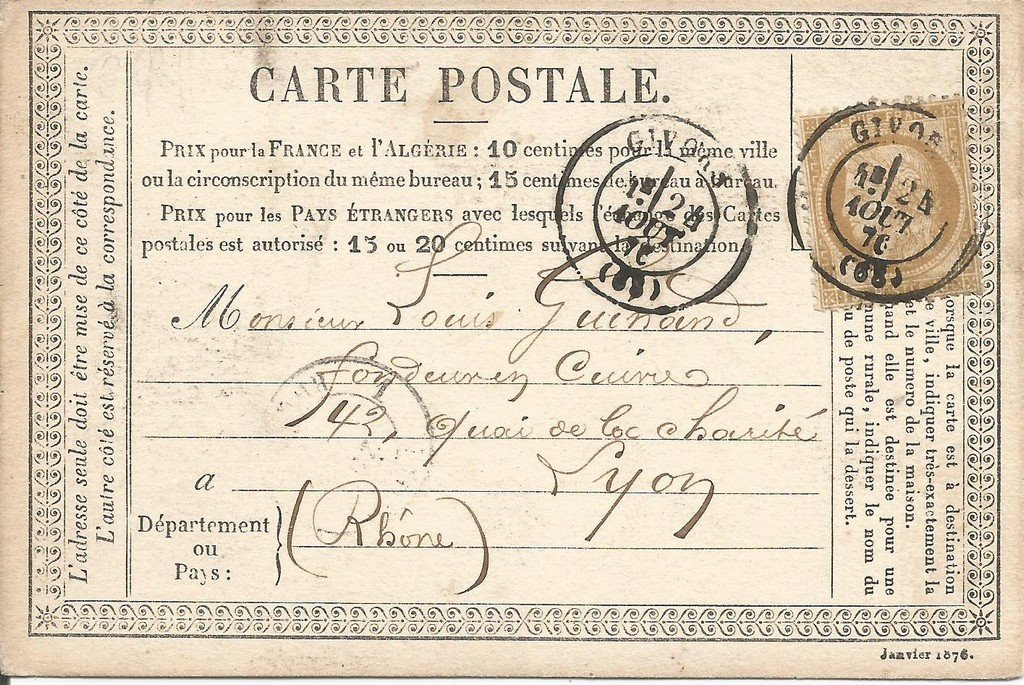 CARTE POSTALE.
PRIX pour la FRANCE et l'ALGÉRIE : 10 centimes pour la même ville
ou la circonscription du même bureau ; 15 centimes de bureau à bureau.
PRIX pour les PAYS ÉTRANGERS avec lesquels l'échange des Cartes
postales est autorisé : 15 ou 20 centimes suivant la destination.
Monsieur Louis Guichard,
fondeur en Cuivre
42, quai de la charité
a Lyon
Département
ou
Pays :
(Rhône)
L'adresse seule doit être mise de ce côté de la carte.
L'autre côté est réservé à la correspondance.
Lorsque la carte est à destination
ville, indiquer très-exactement la
et le numero de la maison.
quand elle est destinée pour une
commune rurale, indiquer le nom du
de poste qui la dessert.
GIVORS
1E/24
AOUT
76
(68)
GIVORS
1E/24
AOUT
76
(68)
Janvier 1876.